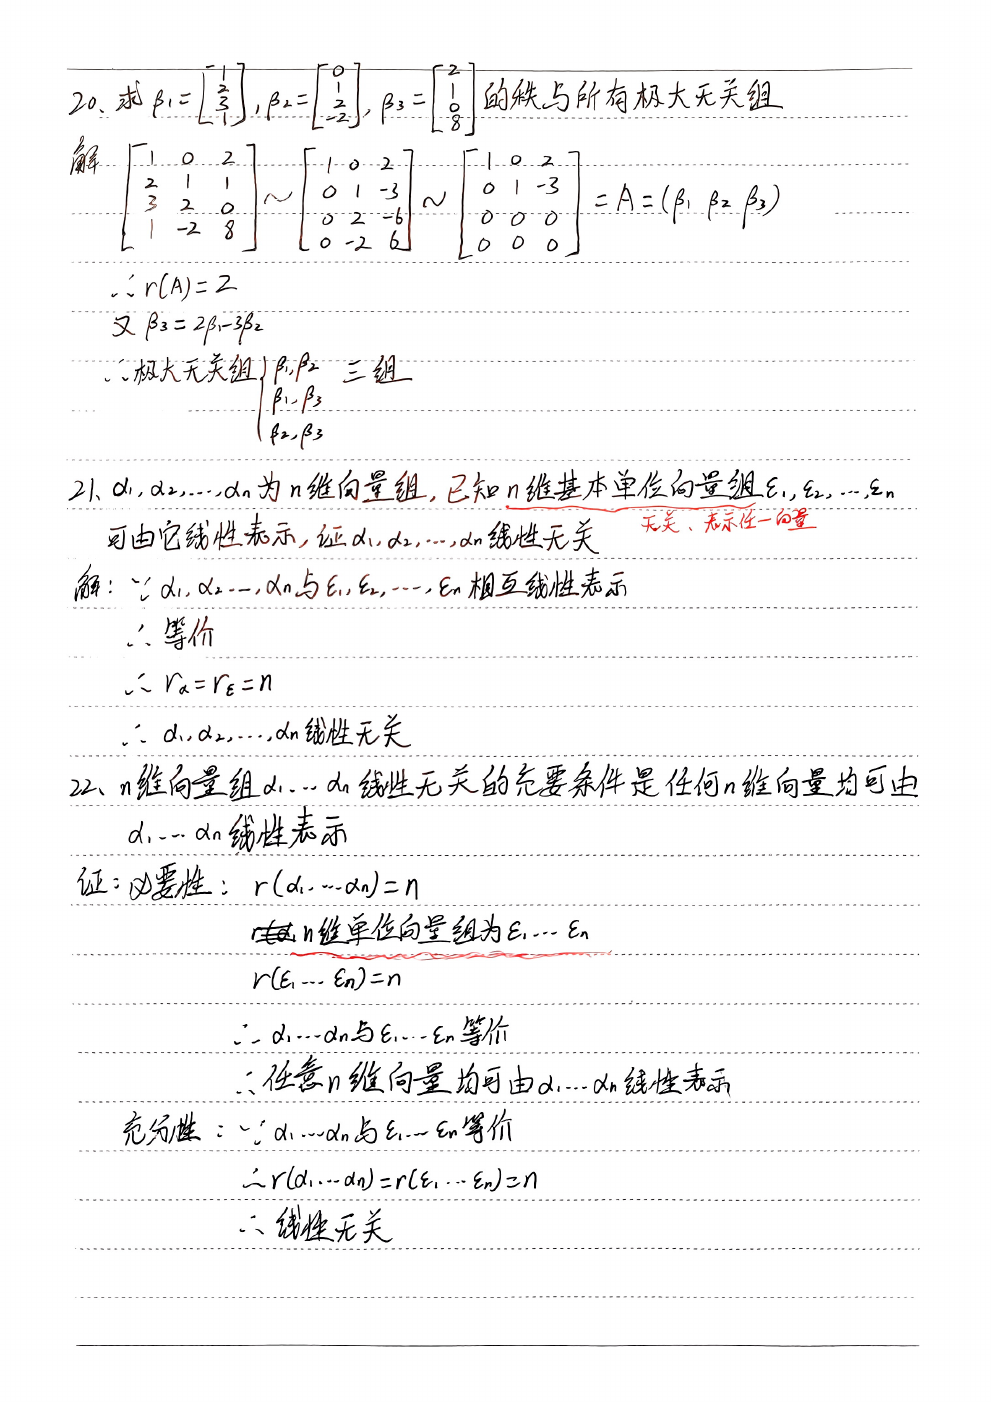 20、求 β₁=[1 2 3 1], β₂=[0 1 2 -2], β₃=[2 1 0 8] 的秩与所有极大无关组
解 [1 0 2; 2 1 1; 3 2 0; 1 -2 8] ~ [1 0 2; 0 1 -3; 0 2 -6; 0 -2 6] ~ [1 0 2; 0 1 -3; 0 0 0; 0 0 0] = A = (β₁ β₂ β₃)
∴ r(A) = 2
又 β₃ = 2β₁-3β₂
∴极大无关组 { β₁,β₂ 三组
β₁,β₃
β₂,β₃
21、α₁,α₂,…,αn为n维向量组,已知n维基本单位向量组ε₁,ε₂,…,εn
无关、表示任一向量
可由它线性表示,证α₁,α₂,…,αn线性无关
解: ∵ α₁,α₂…,αn与ε₁,ε₂,…,εn相互线性表示
∴ 等价
∴ rα=rε=n
∴ α₁,α₂,…,αn线性无关
22、n维向量组α₁…αn线性无关的充要条件是任何n维向量均可由
α₁…αn线性表示
证:必要性: r(α₁…αn)=n
n维单位向量组为ε₁…εn
r(ε₁…εn)=n
∴ α₁…αn与ε₁…εn等价
∴任意n维向量均可由α₁…αn线性表示
充分性: ∵ α₁…αn与ε₁…εn等价
∴r(α₁…αn)=r(ε₁…εn)=n
∴ 线性无关